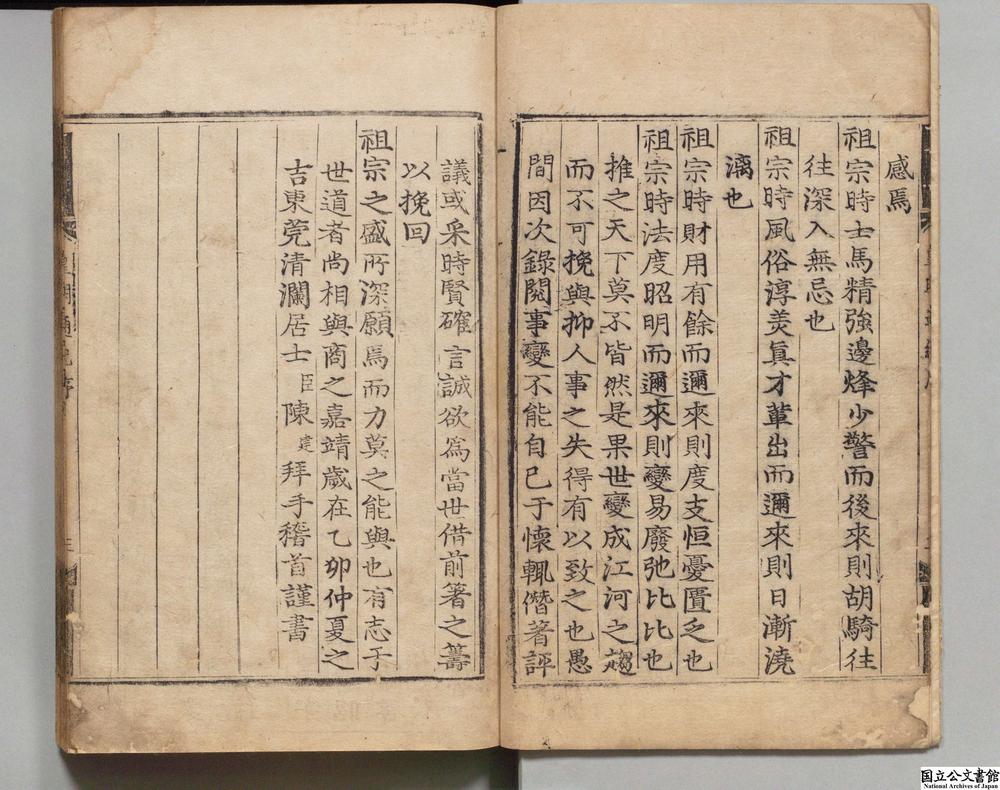 感焉
祖宗時士馬精強邊烽少警而後來則胡騎往
往深入無忌也
祖宗時風俗淳美眞才輩出而邇來則日漸澆
漓也
祖宗時財用有餘而邇來則度支恒憂匱乏也
祖宗時法度昭明而邇來則變易廢弛比比也
推之天下莫不皆然是果世變成江河之趨
而不可挽與抑人事之失得有以致之也愚
間因次錄閱事變不能自已于懷輒僭著評
議或采時賢確言誠欲爲當世借前箸之籌
以挽回
祖宗之盛所深願焉而力莫之能與也有志于
世道者尚相與商之嘉靖歲在乙卯仲夏之
吉東莞清瀾居士臣陳建拜手稽首謹書
国立公文書館
National Archives of Japan